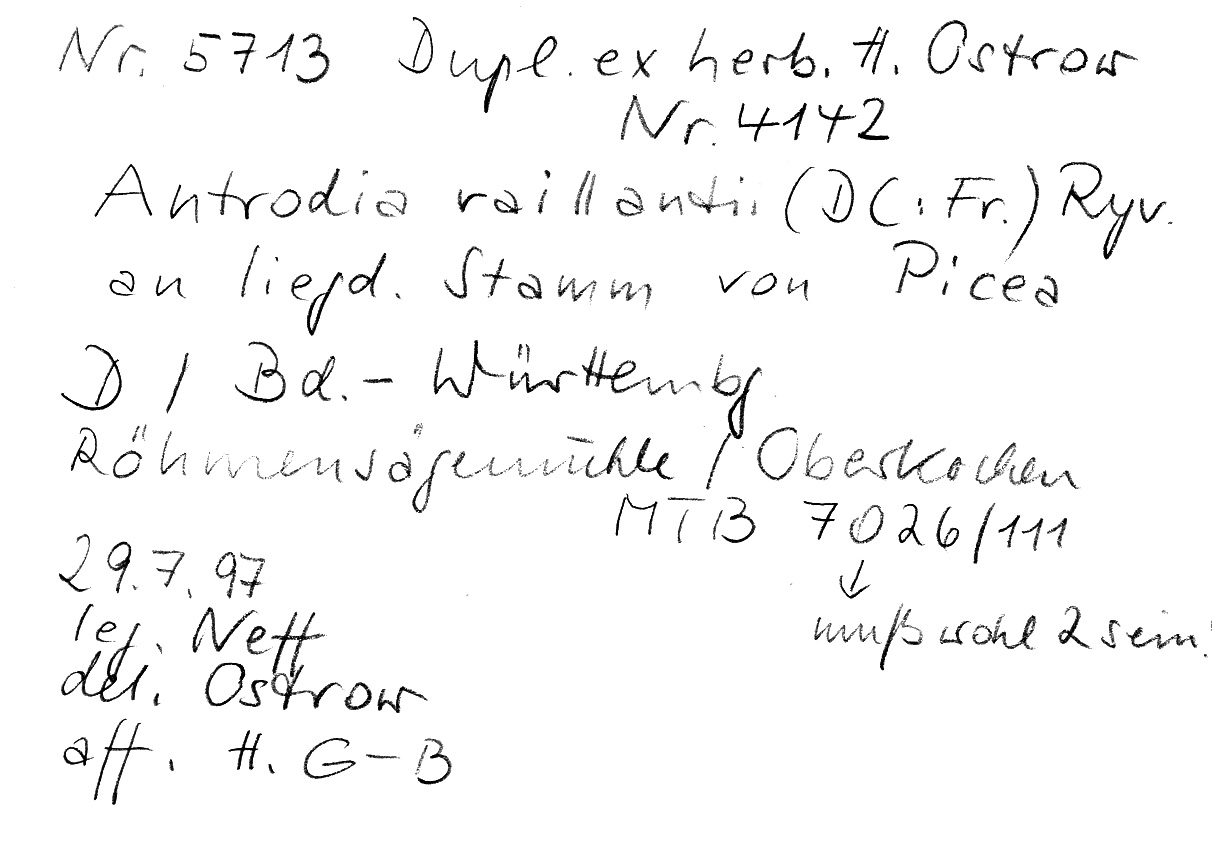 Nr. 5713 Dupl. ex herb. H. Ostrow
Nr. 4142
Antrodia vaillantii (DC: Fr.) Ryv.
an liegd. Stamm von Picea
D / Bd.- Württembg
Röhmensägemühle / Oberkochen
MTB 7026/111
29.7.97
↓
muß wohl 2 sein!
leg. Neff
det. Ostrow
aff. H. G-B